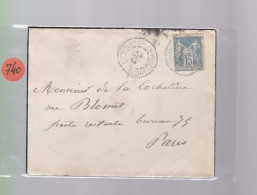 740
15
Monsieur de la Cochetière
rue Blomet
poste restante bureau 75
Paris